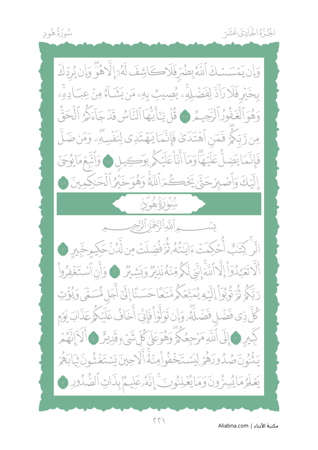 الجُزءُ الحَادِي عَشَرَ
سُورَةُ هُود
وَإِن يَمْسَسْكَ ٱللَّهُ بِضُرٍّ فَلَا كَاشِفَ لَهُۥٓ إِلَّا هُوَ وَإِن يُرِدْكَ
بِخَيْرٍ فَلَا رَآدَّ لِفَضْلِهِۦ يُصِيبُ بِهِۦ مَن يَشَآءُ مِنْ عِبَادِهِۦ
وَهُوَ ٱلْغَفُورُ ٱلرَّحِيمُ قُلْ يَٰٓأَيُّهَا ٱلنَّاسُ قَدْ جَآءَكُمُ ٱلْحَقُّ
مِن رَّبِّكُمْ فَمَنِ ٱهْتَدَىٰ فَإِنَّمَا يَهْتَدِى لِنَفْسِهِۦ وَمَن ضَلَّ
فَإِنَّمَا يَضِلُّ عَلَيْهَا وَمَآ أَنَا۠ عَلَيْكُم بِوَكِيلٍ وَٱتَّبِعْ مَا يُوحَىٰٓ
إِلَيْكَ وَٱصْبِرْ حَتَّىٰ يَحْكُمَ ٱللَّهُ وَهُوَ خَيْرُ ٱلْحَٰكِمِينَ
سُورَةُ هُودٍ
بِسْمِ ٱللَّهِ ٱلرَّحْمَٰنِ ٱلرَّحِيمِ
الٓر كِتَٰبٌ أُحْكِمَتْ ءَايَٰتُهُۥ ثُمَّ فُصِّلَتْ مِن لَّدُنْ حَكِيمٍ خَبِيرٍ
أَلَّا تَعْبُدُوٓا۟ إِلَّا ٱللَّهَ إِنَّنِى لَكُم مِّنْهُ نَذِيرٌ وَبَشِيرٌ وَأَنِ ٱسْتَغْفِرُوا۟
رَبَّكُمْ ثُمَّ تُوبُوٓا۟ إِلَيْهِ يُمَتِّعْكُم مَّتَٰعًا حَسَنًا إِلَىٰٓ أَجَلٍ مُّسَمًّى وَيُؤْتِ
كُلَّ ذِى فَضْلٍ فَضْلَهُۥ وَإِن تَوَلَّوْا۟ فَإِنِّىٓ أَخَافُ عَلَيْكُمْ عَذَابَ يَوْمٍ
كَبِيرٍ إِلَى ٱللَّهِ مَرْجِعُكُمْ وَهُوَ عَلَىٰ كُلِّ شَىْءٍ قَدِيرٌ أَلَآ إِنَّهُمْ
يَثْنُونَ صُدُورَهُمْ لِيَسْتَخْفُوا۟ مِنْهُ أَلَا حِينَ يَسْتَغْشُونَ ثِيَابَهُمْ
يَعْلَمُ مَا يُسِرُّونَ وَمَا يُعْلِنُونَ إِنَّهُۥ عَلِيمٌۢ بِذَاتِ ٱلصُّدُورِ
٢٢١
مكتبة الأنباء | Aliabna.com